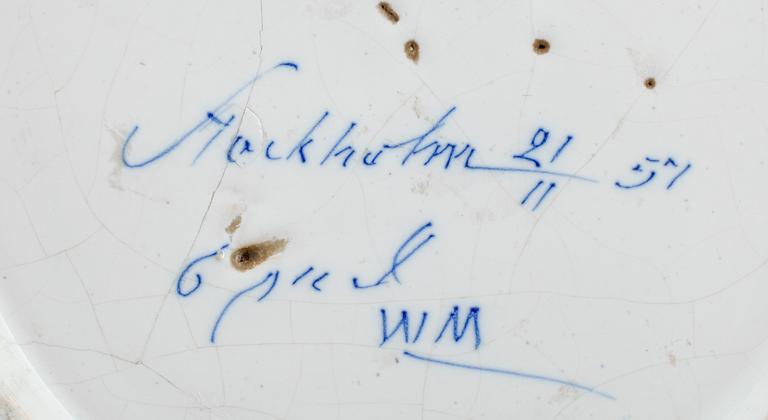 Stockholm 21/11 51
6
WM